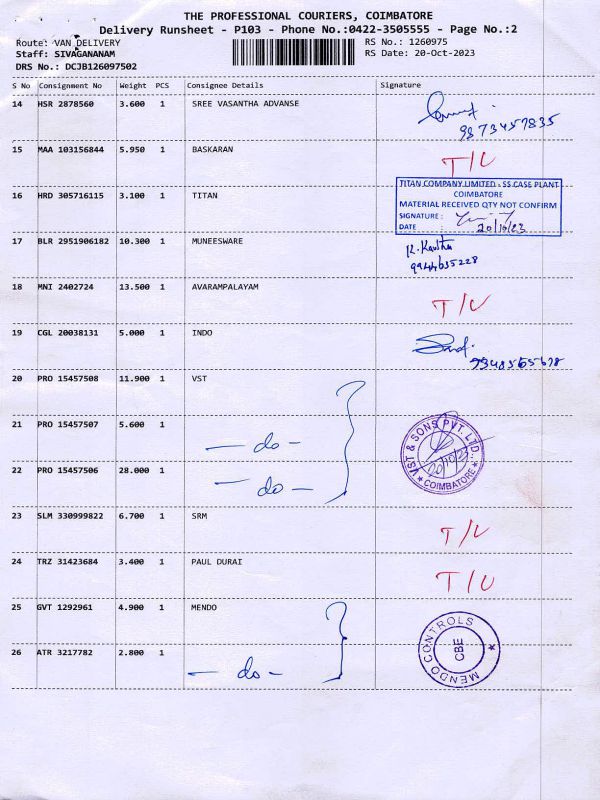 THE PROFESSIONAL COURIERS, COIMBATORE
Delivery Runsheet - P103 - Phone No.:0422-3505555 - Page No.:2
Route: VAN DELIVERY
RS No.: 1260975
Staff: SIVAGANANAM
RS Date: 20-Oct-2023
DRS No.: DCJB126097502
S No Consignment No Weight PCS Consignee Details Signature
14 HSR 2878560 3.600 1 SREE VASANTHA ADVANSE
9873457835
15 MAA 103156844 5.950 1 BASKARAN
T/L
16 HRD 305716115 3.100 1 TITAN
TITAN COMPANY LIMITED - SS CASE PLANT
COIMBATORE
MATERIAL RECEIVED QTY NOT CONFIRM
SIGNATURE :
DATE : 20/10/23
17 BLR 2951906182 10.300 1 MUNEESWARE
9944635228
18 MNI 2402724 13.500 1 AVARAMPALAYAM
T/L
19 CGL 20038131 5.000 1 INDO
20 PRO 15457508 11.900 1 VST
21 PRO 15457507 5.600 1
— do —
VST & SONS PVT. LTD.
20/10/23
COIMBATORE
22 PRO 15457506 28.000 1
— do —
23 SLM 330999822 6.700 1 SRM
T/L
24 TRZ 31423684 3.400 1 PAUL DURAI
T/L
25 GVT 1292961 4.900 1 MENDO
MENDO CONTROLS
CBE
26 ATR 3217782 2.800 1
— do —